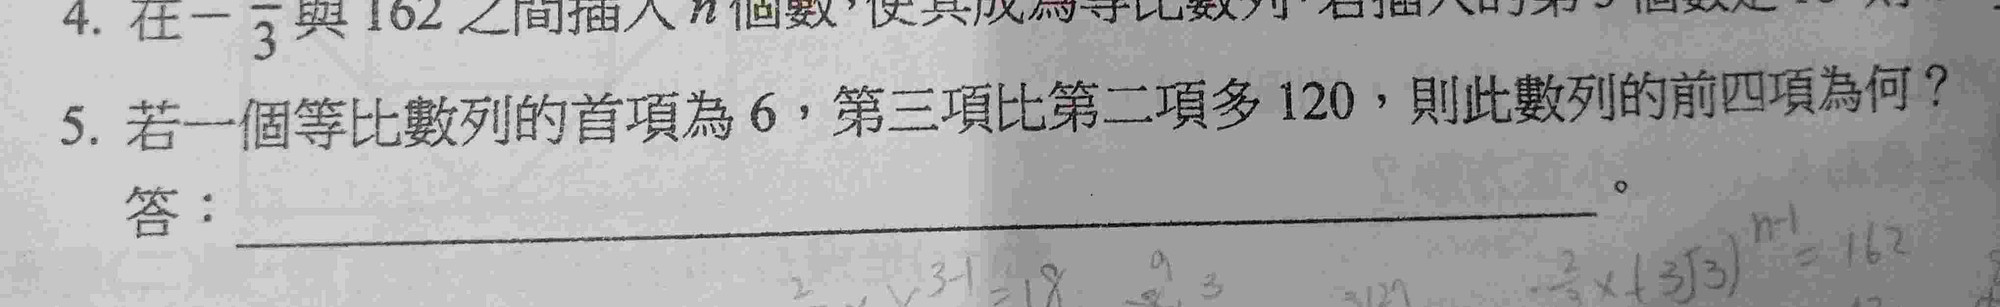 4. 在－ 3 與 162 之間插入 n 個數，使其成為等比數列
5. 若一個等比數列的首項為 6，第三項比第二項多 120，則此數列的前四項為何？
答：。
3-1 =18 9 3
×(3√3)^{n-1} = 162